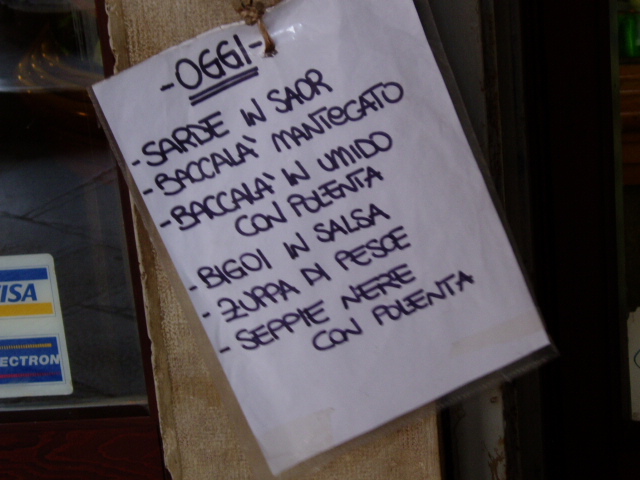 -OGGI-
-SARDE IN SAOR
-BACCALA' MANTECATO
-BACCALA' IN UMIDO
CON POLENTA
-BIGOI IN SALSA
-ZUPPA DI PESCE
-SEPPIE NERE
CON POLENTA
VISA
ECTRON